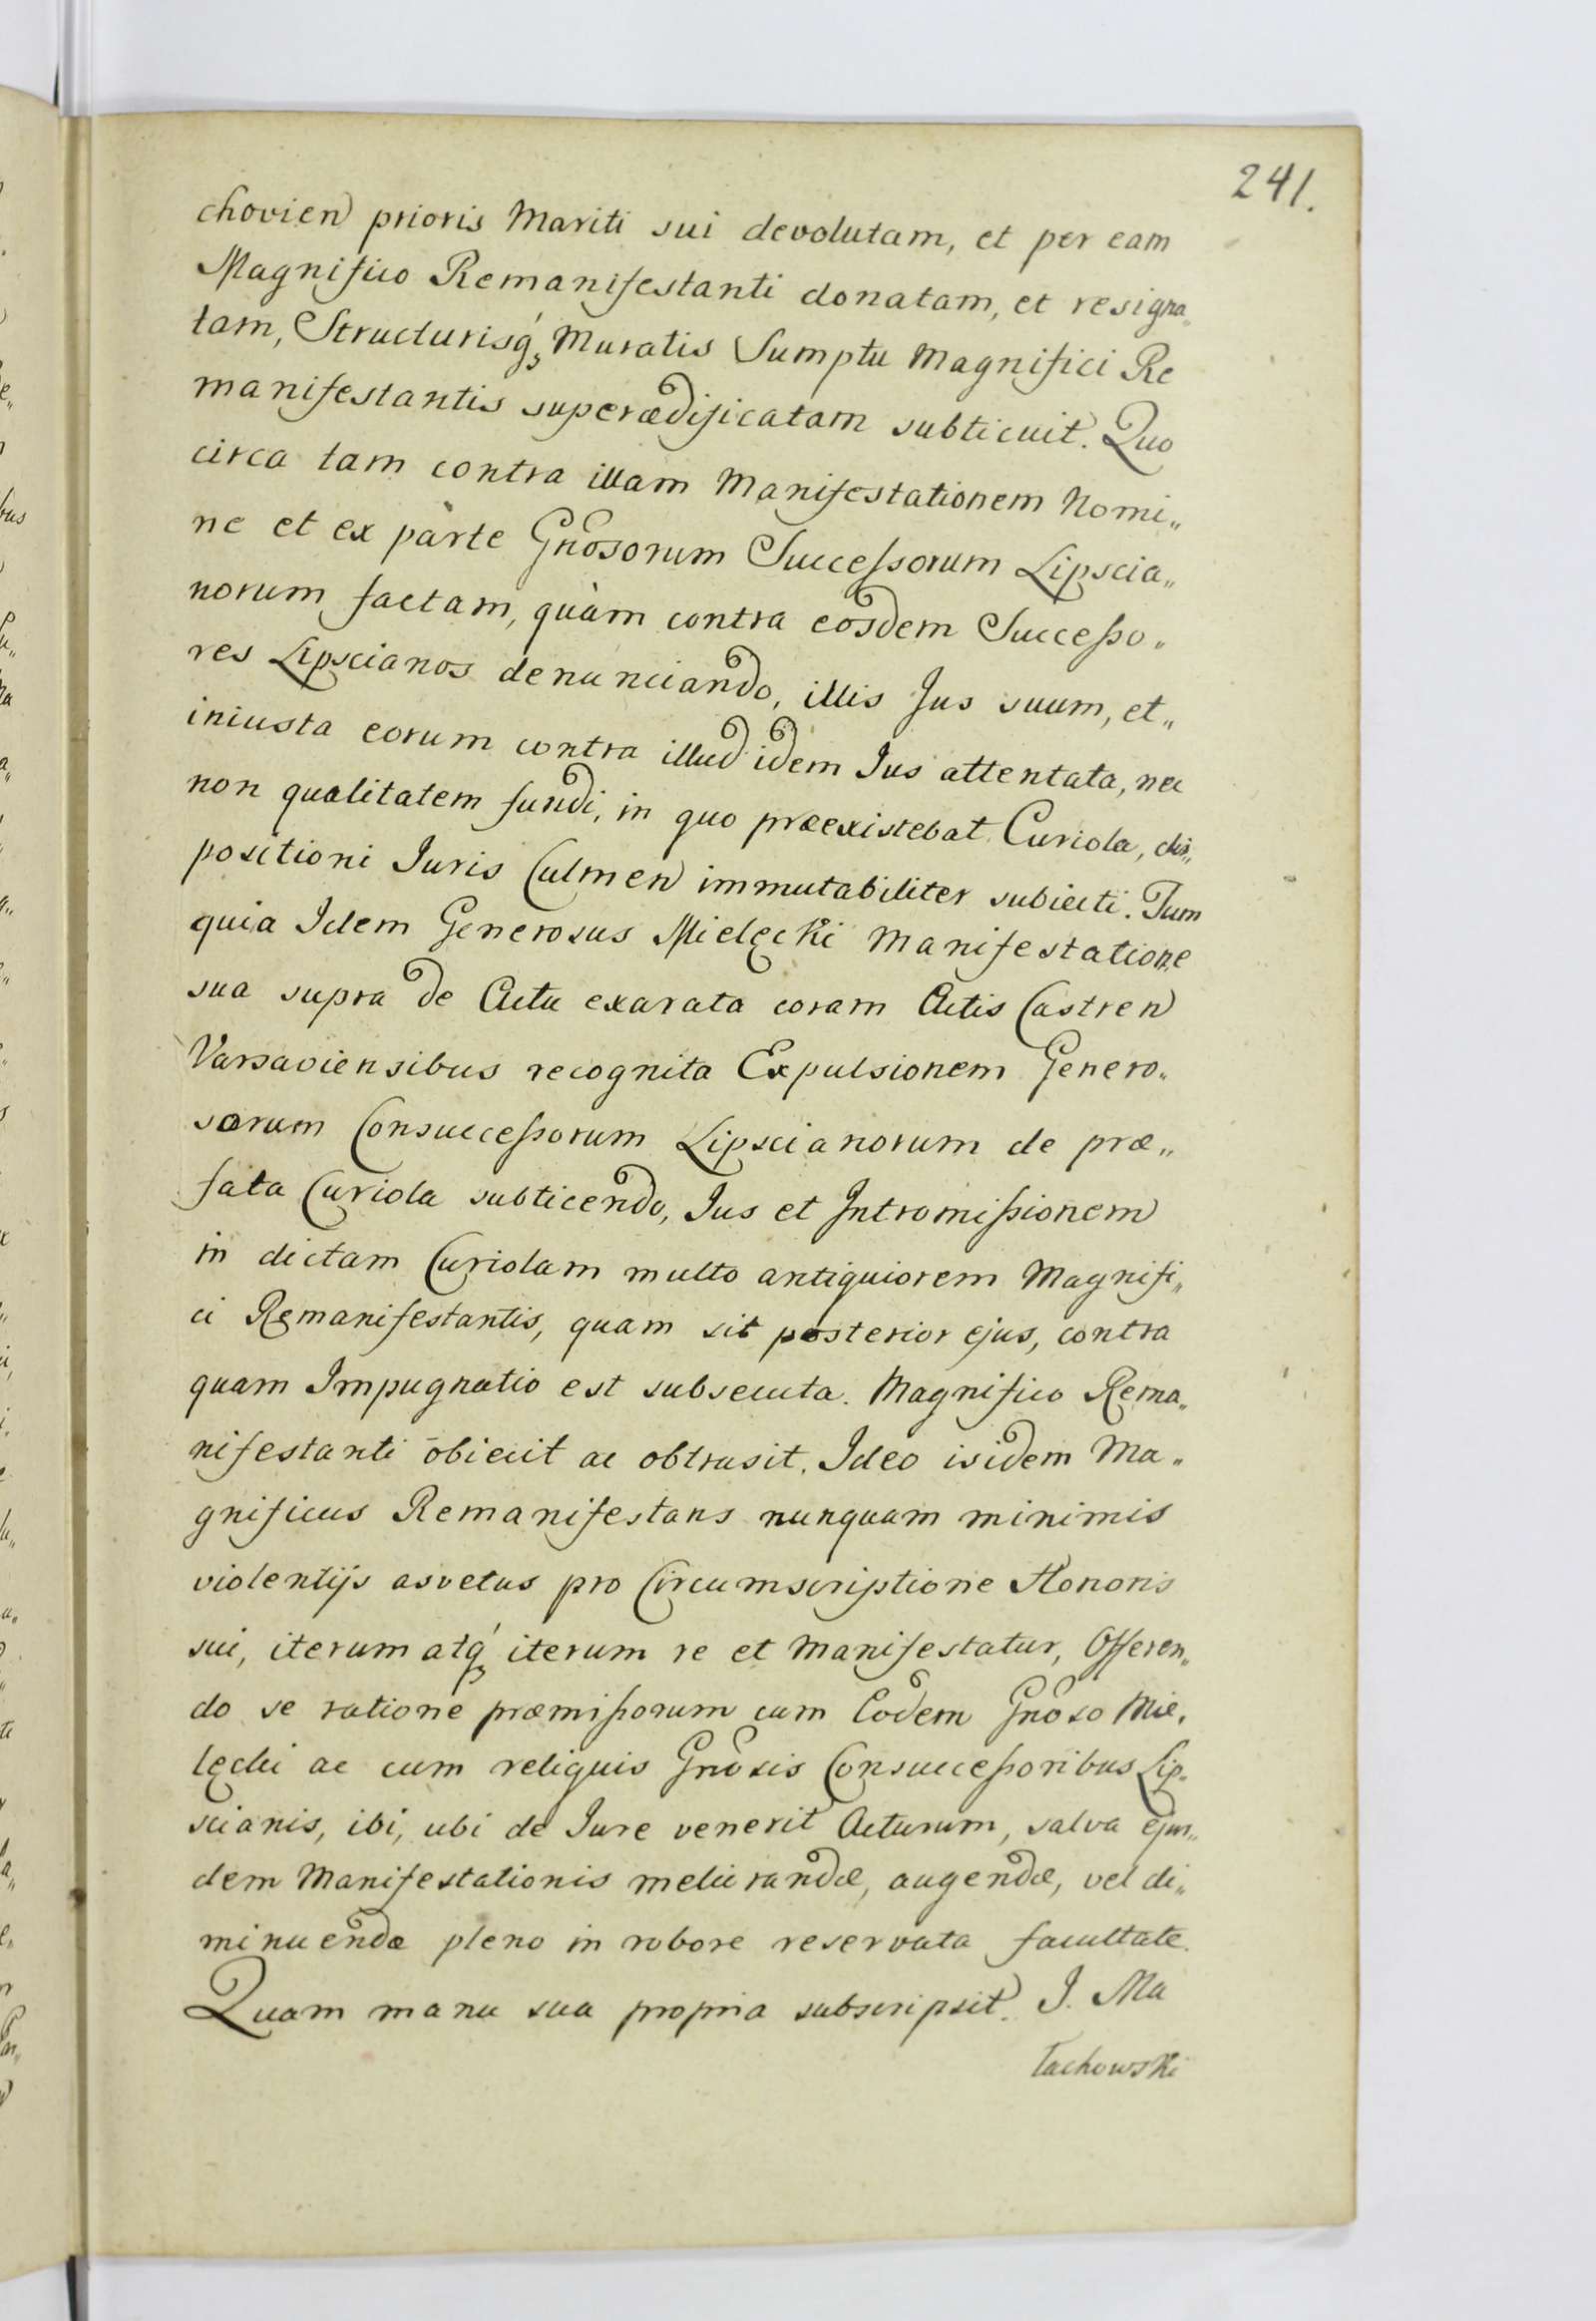 241.
chovien prioris Mariti sui devolutam, et per eam
Magnifico Remanifestanti donatam, et resigna„
tam, Structurisq́ Muratis Sumptu Magnifici Re
manifestantis superædificatam subticuit. Quo
circa tam contra illam Manifestationem Nomi„
ne et ex parte Gnosorum Successorum Lipscia„
norum factam, quàm contra eosdem Successo„
res Lipscianos denunciando, illis Jus suum, et„
iniusta eorum contra illud idem Jus attentata, nec
non qualitatem fundi, in quo præexistebat Curiola, dis„
positioni Juris Culmen immutabiliter subiecti. Tum
quia Idem Generosus Mielęcki Manifestatione
sua supra de Actu exarata coram Actis Castren
Varsaviensibus recognita Expulsionem Genero„
sorum Consuccessorum Lipscianorum de præ„
fata Curiola subticendo, Jus et Intromissionem
in dictam Curiolam multo antiquiorem Magnifi„
ci Remanifestantis, quam sit posterior ejus, contra
quam Impugnatio est subsecuta. Magnifico Rema„
nifestanti obiecit ac obtrusit. Ideo isidem Ma„
gnificus Remanifestans nunquam minimis
violentijs asvetus pro Circumscriptione Honoris
sui, iterum atq́ iterum re et Manifestatur, Offeren„
do se ratione præmissorum cum Eodem Gnoso Mie„
lęcki ac cum reliquis Gnosis Consuccessoribus Lip„
scianis, ibi, ubi de Jure venerit Acturum, salva ejus„
dem Manifestationis meliorandæ, augendæ, vel di„
minuendæ pleno in robore reservata facultate.
Quam manu sua propria subscripsit. J. Ma
łachowski